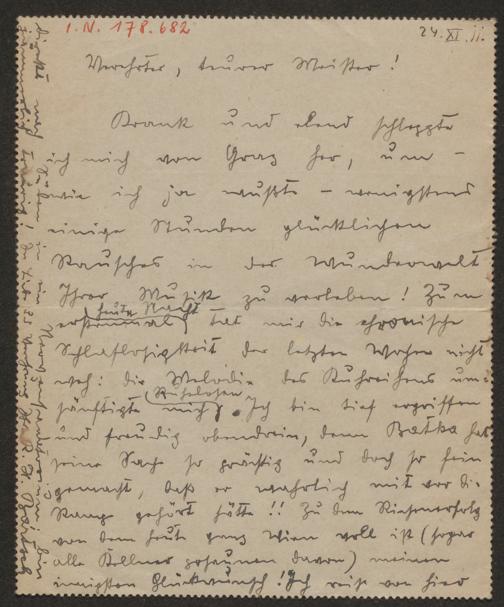 I.N. 178.682
24.XI.11.
Verehrter, teurer Meister!
Krank und elend schleppte
ich mich von Graz her, um –
wie ich ja wußte – wenigstens
einige Stunden glücklichen
Rausches in der Wunderwelt
Ihrer Musik zu verleben! Zum
erstenmal (heute Nacht) tat mir die chronische
Schlaflosigkeit der letzten Wochen nicht
weh: die Melodie des Kuhreihens um-
sänftigte mich (Ruhelosen). Ich bin tief ergriffen
und freudig obendrein, denn Batka hat
seine Sache so prächtig und doch so fein
gemacht, daß er wahrlich mit vor die
Rampe gehört hätte!! Zu dem Riesenerfolg
von dem heute ganz Wien voll ist (sogar
alle Kellner posaunen davon) meinen
innigsten Glückwunsch! Ich reise von hier